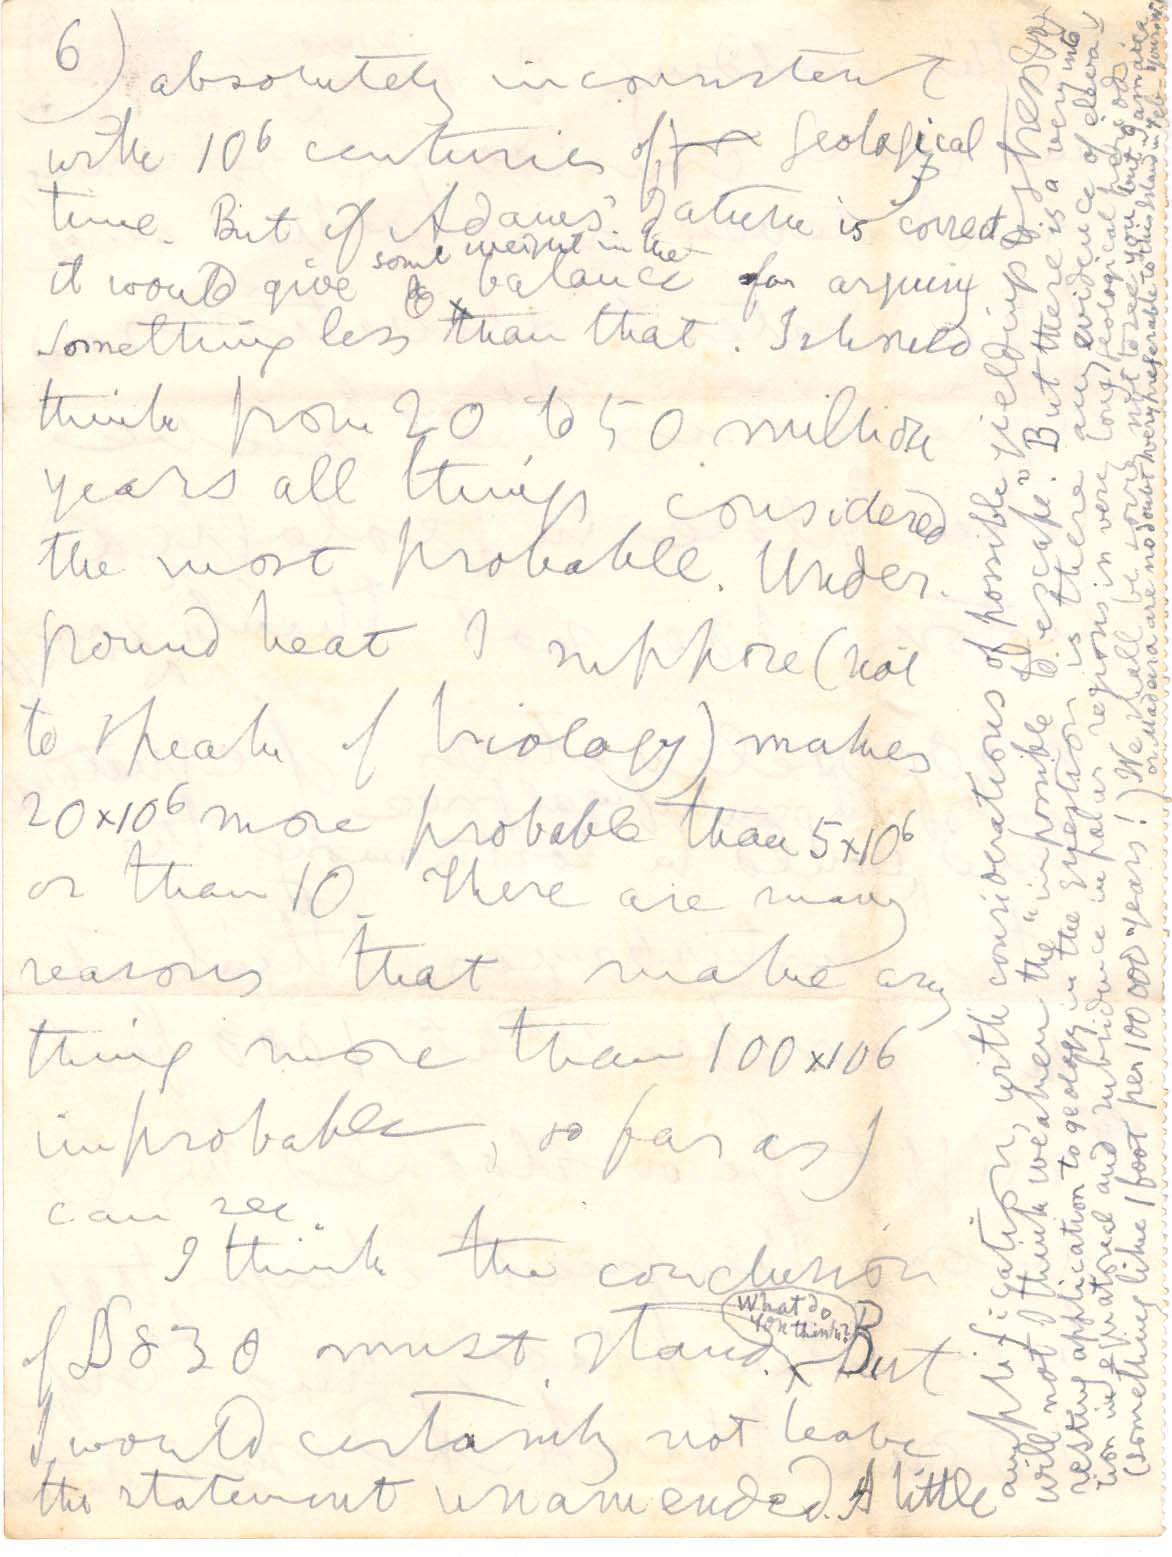 6)
absolutely inconsistent
with 10⁶ centuries of geological
time. But if Adams' datum is correct
some weight in the
it would give balance for arguing
something less than that. I should
think from 20 to 50 million
years all things considered
the most probable. Under-
ground heat I suppose (not
to speak of biology) makes
20×10⁶ more probable than 5×10⁶
or than 10. There are many
reasons that make any
thing more than 100×10⁶
improbable, so far as I
can see.
I think the conclusion
What do
you think?
of § 830 must stand. But
I would certainly not leave
the statement unamended. A little
amplification, with considerations of possible yielding to stress
will not I think weaken the "impossible to escape". But there is a very inte
resting application to geology in the question is there any evidence of eleva
tion in equatorial and subsidence in polar regions in very long geological periods
(something like 1 foot per 100 000 years!) We shall be sorry not to see you but
or Madeira are no doubt very preferable to this Island in Feb. Yours